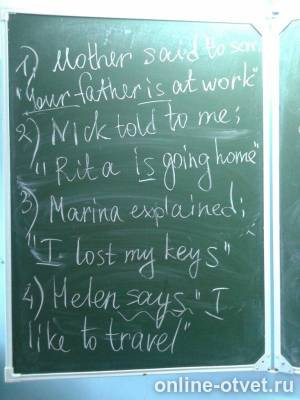 1) Mother said to son:
"Your father is at work"
2) Nick told to me:
"Rita is going home"
3) Marina explained:
"I lost my keys"
4) Helen says "I
like to travel"
online-otvet.ru